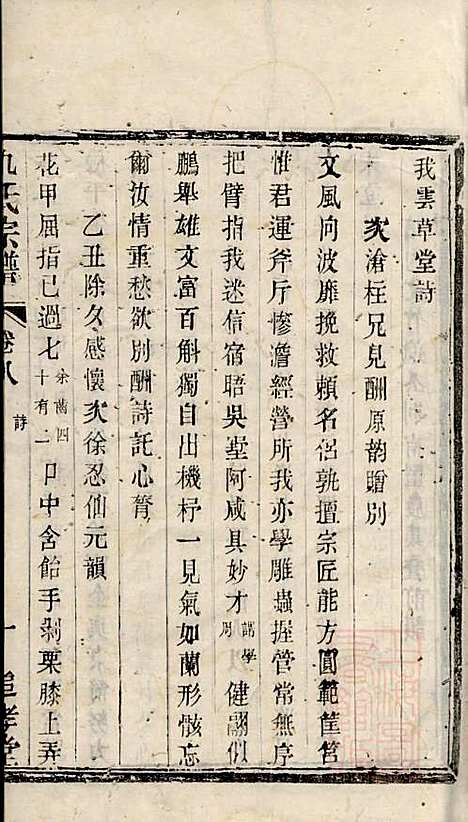 我雲草堂詩
次滄柱兄見酬原韵贈別
文風向波靡挽救賴名侶孰擅宗匠能方圓範筐筥
惟君運斧斤慘澹經營所我亦學雕蟲握管常無序
把臂指我迷信宿晤吳堂阿咸具妙才謂學 以健翮似
鵬舉雄文富百斛獨自出機杼一見氣如蘭形骸忘
爾汝情重愁欲別酬詩託心膂
乙丑除夕感懷次徐忍仙元韻
花甲屈指已過七余齒四十有二口中含飴手剝栗膝上弄
仇氏宗譜
卷八
詩
一
追孝堂